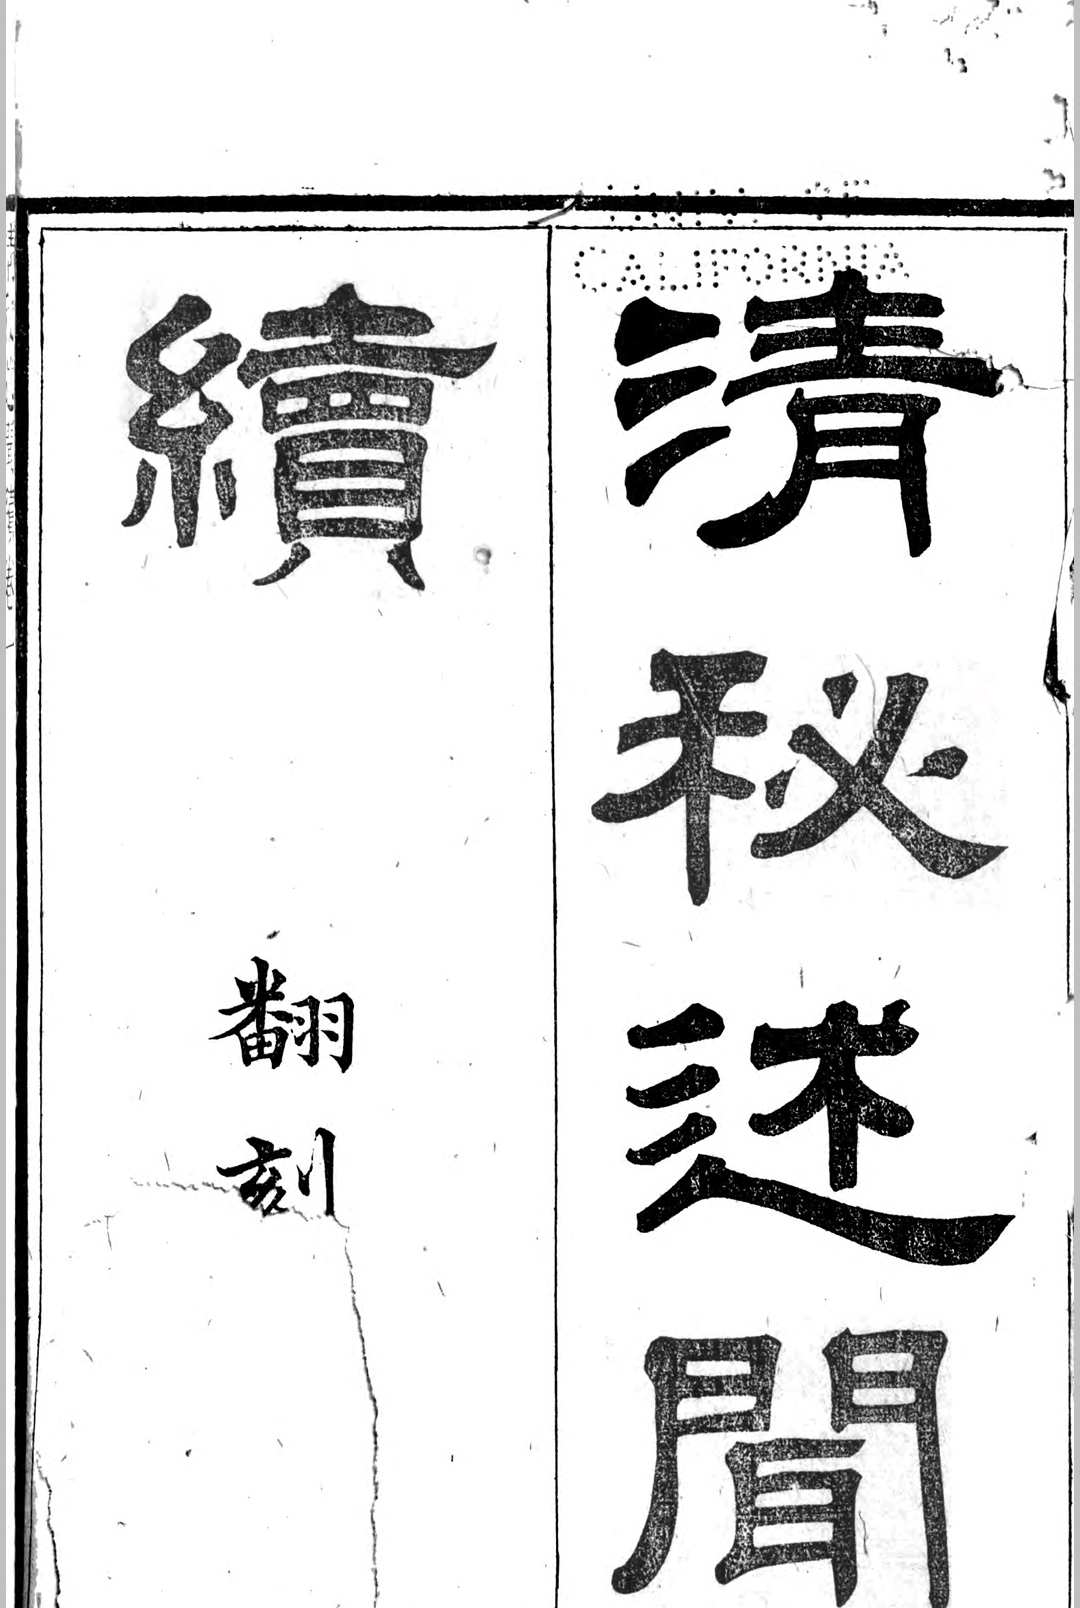 清秘述聞
續
翻刻
CALIFORNIA